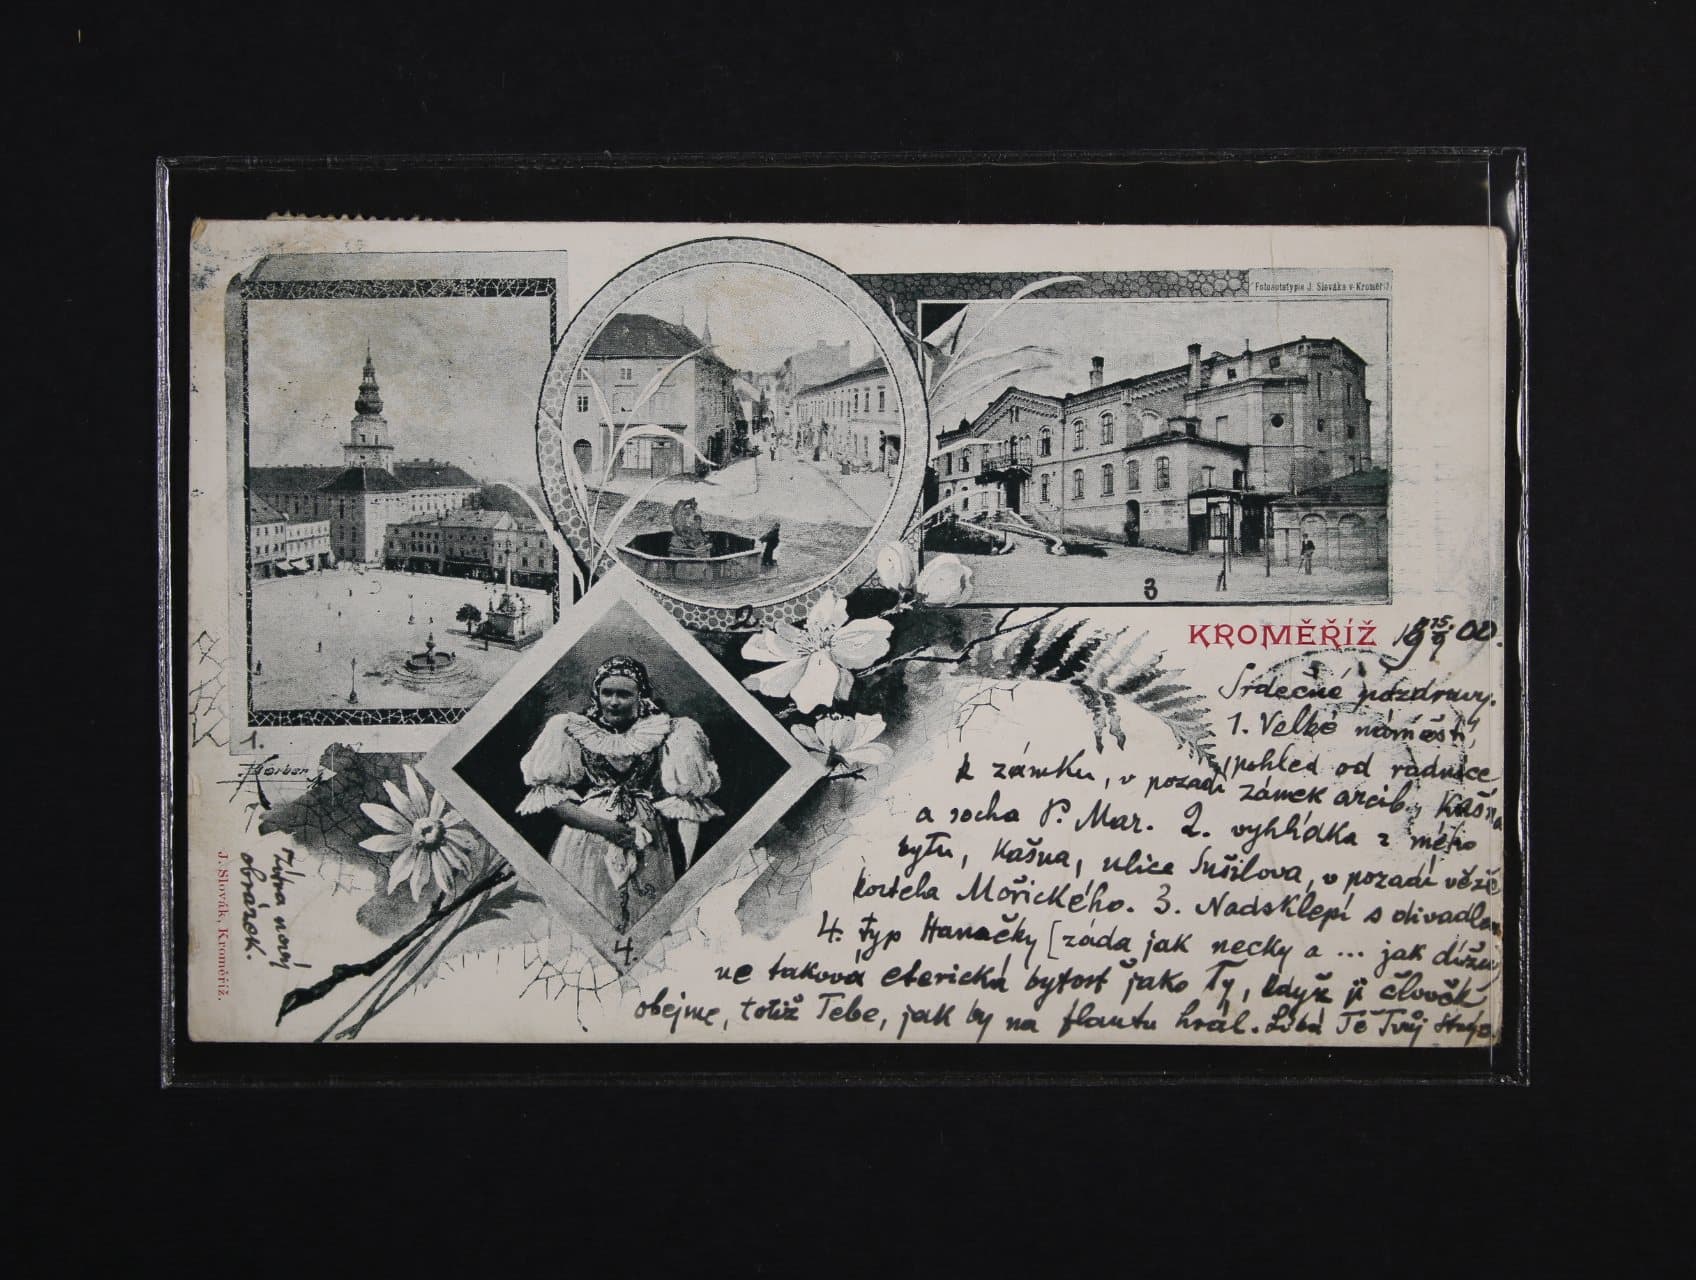 Fotoautotypie J. Slováka v Kroměříži
3
2.
KROMĚŘÍŽ 19 15/9 00.
Srdečné pozdravy.
1. Velké náměstí,
pohled od radnice
k zámku, v pozadí zámek arcib., kašna
a socha P. Mar. 2. vyhlídka z mého
bytu, kašna, ulice Sušilova, v pozadí věže
kostela Mořického. 3. Nadsklepí s divadlem
4. typ Hanačky [záda jak necky a ... jak
ne taková eterická bytost jako Ty, když ji člověk
obejme, totiž Tebe, jak by na flautu hrál. Líbá Tě Tvůj
1.
4.
Zítra nový
obrázek.
J. Slovák, Kroměříž.